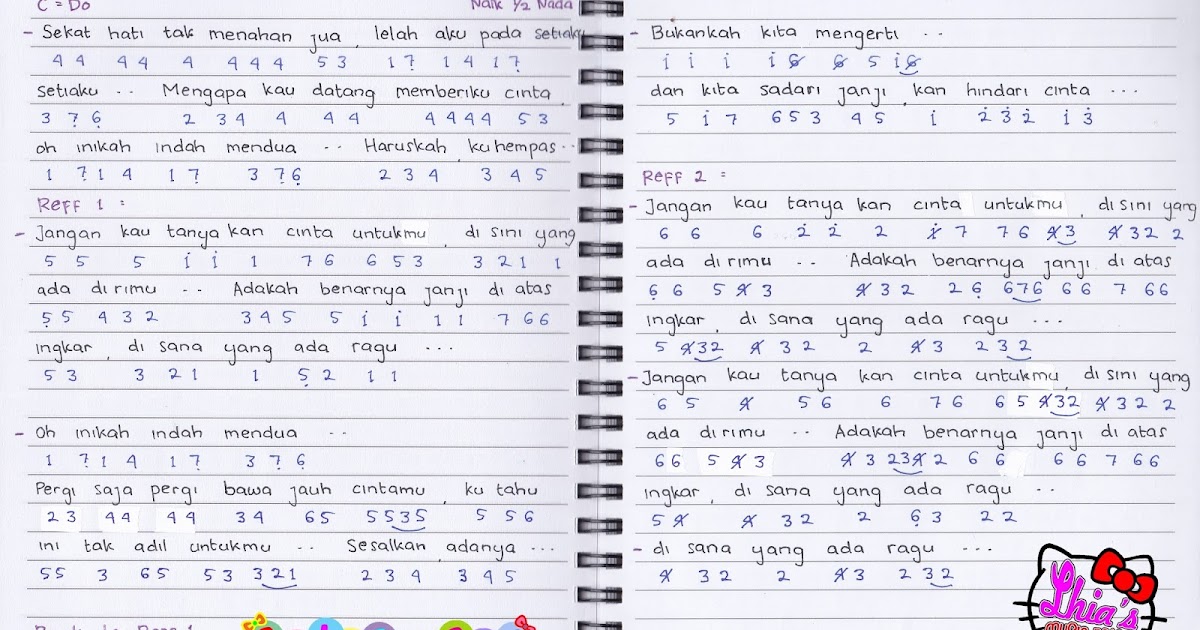 C = Do Naik 1/2 Nada
- Sekat hati tak menahan jua, lelah aku pada setiaku
4 4 4 4 4 4 4 4 5 3 1 7̣ 1 4 1 7̣
setiaku .. Mengapa kau datang memberiku cinta,
3 7̣ 6̣ 2 3 4 4 4 4 4 4 4 4 5 3
oh inikah indah mendua .. Haruskah, ku hempas ..
1 7̣ 1 4 1 7̣ 3 7̣ 6̣ 2 3 4 3 4 5
Reff 1 :
- Jangan kau tanya kan cinta untukmu, di sini yang
5 5 5 1̇ 1̇ 1 7 6 6 5 3 3 2 1 1
ada di rimu .. Adakah benarnya janji di atas
5̣ 5 4 3 2 3 4 5 5 1̇ 1̇ 1 1 7 6 6
ingkar, di sana yang ada ragu ...
5 3 3 2 1 1 5̣ 2 1 1
- Oh inikah indah mendua ..
1 7̣ 1 4 1 7̣ 3 7̣ 6̣
Pergi saja pergi bawa jauh cintamu, ku tahu
2 3 4 4 4 4 3 4 6 5 5 5 3 5 5 5 6
ini tak adil untukmu .. Sesalkan adanya ...
5 5 3 6 5 5 3 3 2 1 2 3 4 3 4 5
- Bukankah kita mengerti ..
1̇ 1̇ 1̇ 1̇ 6̸ 6̸ 5 1̇ 6̸
dan kita sadari janji, kan hindari cinta ...
5 1̇ 7 6 5 3 4 5 1̇ 2̇ 3̇ 2̇ 1̇ 3̇
Reff 2 :
- Jangan kau tanya kan cinta untukmu, di sini yang
6 6 6 2̇ 2̇ 2 1̸̇ 7 7 6 4̸ 3 4̸ 3 2 2 2
ada di rimu .. Adakah benarnya janji di atas
6̣ 6 5 4̸ 3 4̸ 3 2 2 6̣ 6 7 6 6 6 7 6 6
ingkar, di sana yang ada ragu ...
5 4̸ 3 2 4̸ 3 2 2 4̸ 3 2 3 2
- Jangan kau tanya kan cinta untukmu, di sini yang
6 5 4̸ 5 6 6 7 6 6 5 4̸ 3 2 4̸ 3 2 2
ada di rimu .. Adakah benarnya janji di atas
6 6 5 4̸ 3 4̸ 3 2 3 4̸ 2 6 6 6 6 7 6 6
ingkar, di sana yang ada ragu ..
5 4̸ 4̸ 3 2 2 6̣ 3 2 2
- di sana yang ada ragu ...
4̸ 3 2 2 4̸ 3 2 3 2
Lhia's